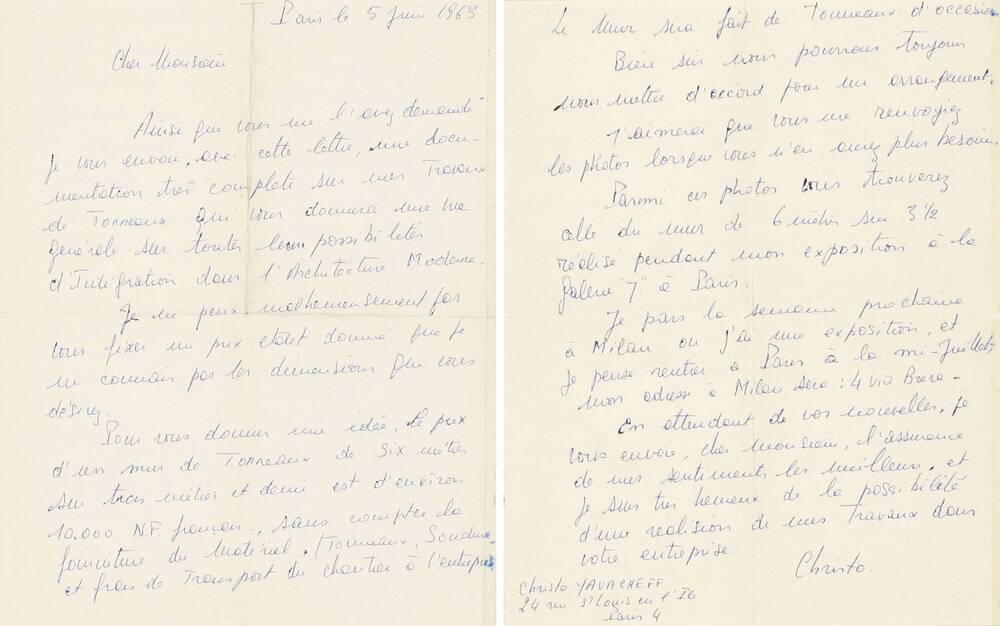 Paris le 5 Juin 1963
Cher Monsieur.
Ainsi que vous me l'avez demandé
Je vous envoie, avec cette lettre, une docu-
mentation très complète sur mes Travaux
de Tonneaux qui vous donnera une vue
générale sur toutes leurs possibilités
d'Intégration dans l'Architecture Moderne.
Je ne peux malheureusement pas
vous fixer un prix étant donné que je
ne connais pas les dimensions que vous
désirez.
Pour vous donner une idée, le prix
d'un mur de Tonneaux de Six mètres
sur trois mètres et demi est d'environ
10.000 N.F. français, sans compter la
fourniture du Materiel. (Tonneaux, Soudure
et frais de Transport du chantier à l'entreprise
Le Mur sera fait de Tonneaux d'occasion
Bien sûr nous pourrons toujours
nous mettre d'accord pour un arrangement.
J'aimerai que vous me renvoyiez
les photos lorsque vous n'en aurez plus besoin.
Parmi ces photos vous trouverez
celle du mur de 6 mètres sur 3 1/2
réalisé pendant mon exposition à la
Galerie "J" à Paris.
Je pars la semaine prochaine
à Milan ou j'ai une exposition, et
Je pense rentrer à Paris à la mi-Juillet,
mon adresse à Milan sera : 4 via Brera -
En attendant de vos nouvelles, je
vous envoie, cher Monsieur, l'assurance
de mes sentiments les meilleurs, et
Je suis très heureux de la possibilité
d'une realision de mes Travaux dans
votre entreprise.
Christo.
Christo YAVACHEFF
24 rue St Louis en l'Ile
Paris 4